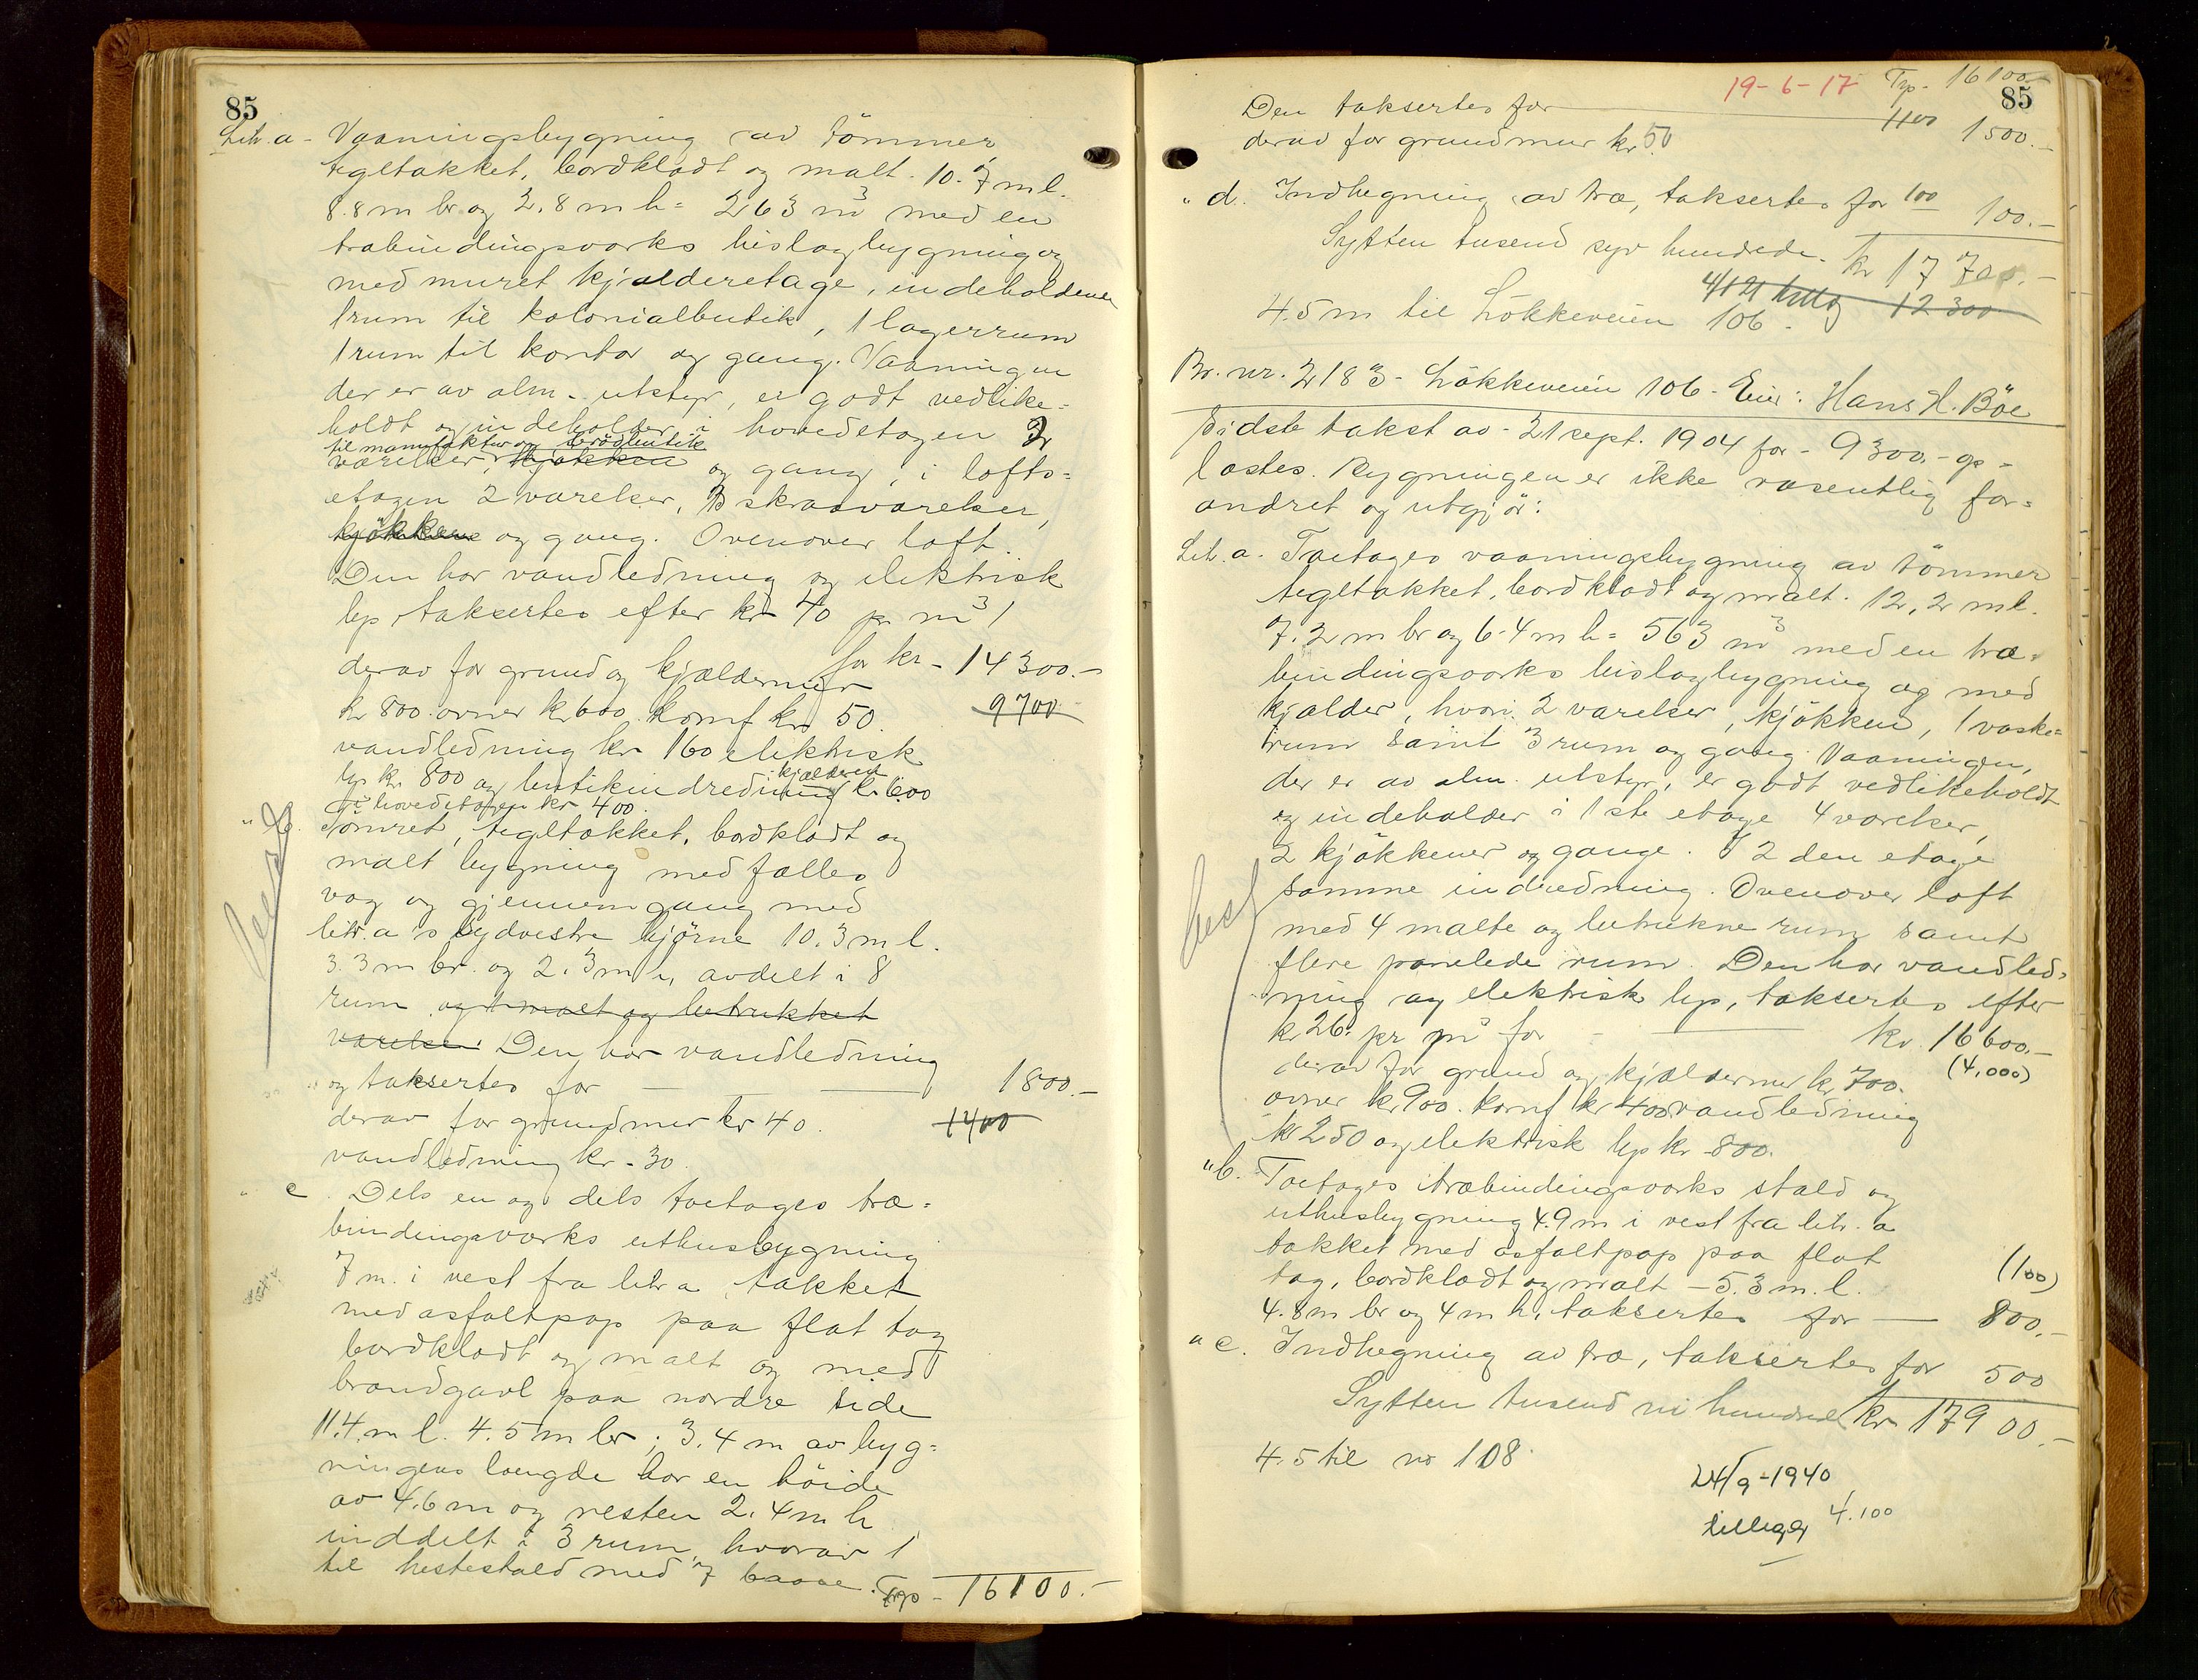 85
Litr. a - Vaaningsbygning av tömmer
tegltakket, bordklædt og malt. 10.7 m l.
8.8 m br og 2.8 m h = 263 m³ med en
træbindingsværks bislagbygning og
med muret kjælderetage, indeholdende
1 rum til kolonialbutik, 1 lagerrum
1 rum til kontor og gang. Vaaningen
der er av alm. utstyr, er godt vedlike=
holdt og indeholder i hovedetagen 2
til manufaktur og brödbutik
værelser, kjökken og gang, i lofts=
etagen 2 værelser, 3 skraaværelser,
kjökken og gang. Ovenover loft.
Den har vandledning og elektrisk
lys, taksertes efter kr 40 pr m³
for kr - 14300.-
derav for grund og kjældermur
9700
kr 800. ovner kr 600. komf kr 50.
vandledning kr 160 elektrisk
kjælderen
lys kr 800 og butikindredning kr 600
i hovedetagen kr 400.
" b. Tömret, tegltakket, bordklædt og
malt bygning med fælles
væg og gjennemgang med
litr. a's sydvestre hjörne 10.3 m l.
3.3 m br. og 2.3 m h, avdelt i 8
rum og 1 malt og betrukket
værelse. Den har vandledning
og taksertes for 1800.-
derav for grundmur kr 40. 1400
vandledning kr - 30.
" c. Dels en og dels toetages træ=
bindingsværks uthusbygning
7 m. i vest fra litr a, takket
med asfaltpap paa flat tag
bordklædt og malt og med
brandgavl paa nordre side
11.4 m l. 4.5 m br; 3.4 m av byg=
ningens længde har en höide
av 4.6 m og resten 2.4 m h
inddelt i 3 rum, hvorav 1
til hestestald med 7 baase. Trp - 16100.-
19-6-17 Trp. 16100.-
85
Den taksertes for 1100 1500.-
derav for grundmur kr 50
" d. Indhegning av træ, taksertes for 100 100.-
Sytten tusend syv hundrede. kr 17700.-
12300
4.5 m til Lökkeveien 106.
Br. nr. 2183 - Lökkeveien 106 - Eier: Hans H. Böe
Sidste takst av - 21 sept. 1904 for - 9300.- op -
læstes. Bygningen er ikke væsentlig for=
andret og utgjör:
Litr. a. Toetages vaaningsbygning av tömmer
tegltakket, bordklædt og malt. 12,2 m l.
7.2 m br og 6.4 m h = 563 m³ med en træ=
bindingsværks bislagbygning og med
kjælder, hvori 2 værelser, kjökken, 1 vaske=
rum samt 3 rum og gang. Vaaningen,
der er av alm. utstyr, er godt vedlikeholdt
og indeholder i 1ste etage 4 værelser,
2 kjökkener og gange. I 2den etage
samme indredning. Ovenover loft
med 4 malte og betrukne rum samt
flere panelede rum. Den har vandled=
ning og elektrisk lys, taksertes efter
kr 26. pr m³ for kr. 16600.-
derav for grund og kjældermur kr 700. (4,000)
ovner kr 900. komf kr 400 vandledning
kr 250 og elektrisk lys kr 800.
" b. Toetages træbindingsværks stald og
uthusbygning 4.9 m i vest fra litr. a
takket med asfaltpap paa flat
tag, bordklædt og malt - 5.3 m. l. (100)
4.8 m br og 4 m h, taksertes for 800.-
" c. Indhegning av træ, taksertes for 500
Sytten tusend ni hundrede kr 17900.-
4.5 til no 108.
24/9-1940
tillegg 4.100